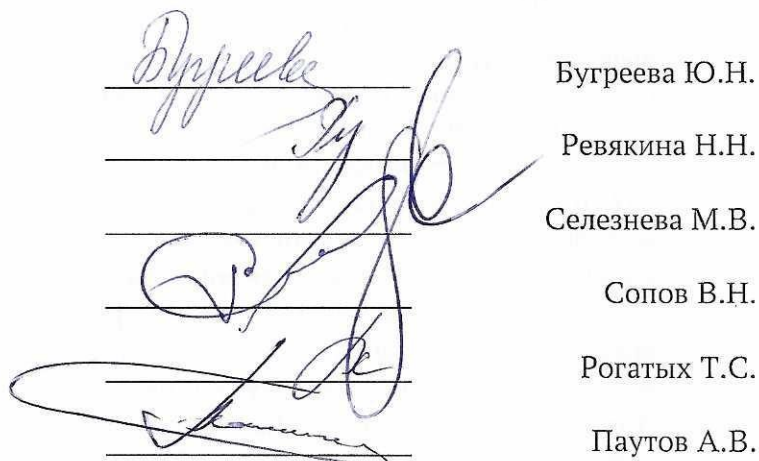 Бугреева Бугреева Ю.Н.
Ревякина Н.Н.
Селезнева М.В.
Сопов В.Н.
Рогатых Т.С.
Паутов А.В.